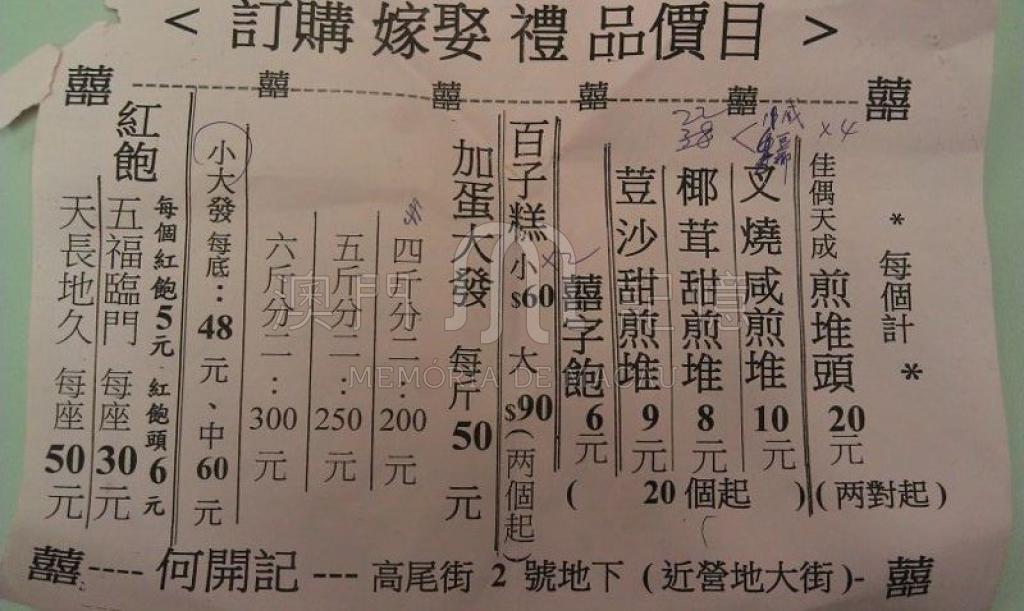 < 訂購 嫁娶 禮 品價目 >
囍 囍 囍 囍 囍 囍
* 每個計 *
佳偶天成 煎堆頭 20元
(两對起)
x4
叉燒咸煎堆 10元
22
38
椰茸甜煎堆 8元
荳沙甜煎堆 9元
囍字飽 6元
( 20個起 )
百子糕 小$60 大$90(两個起)
x2
加蛋大發 每斤50元
四斤分二:200元
五斤分二:250元
六斤分二:300元
小大發 每底:48元、中60元
紅飽
每個紅飽5元 紅飽頭6元
五福臨門 每座30元
天長地久 每座50元
囍----何開記---高尾街 2 號地下 (近營地大街)-囍
澳門記憶
MEMÓRIA DE MACAU